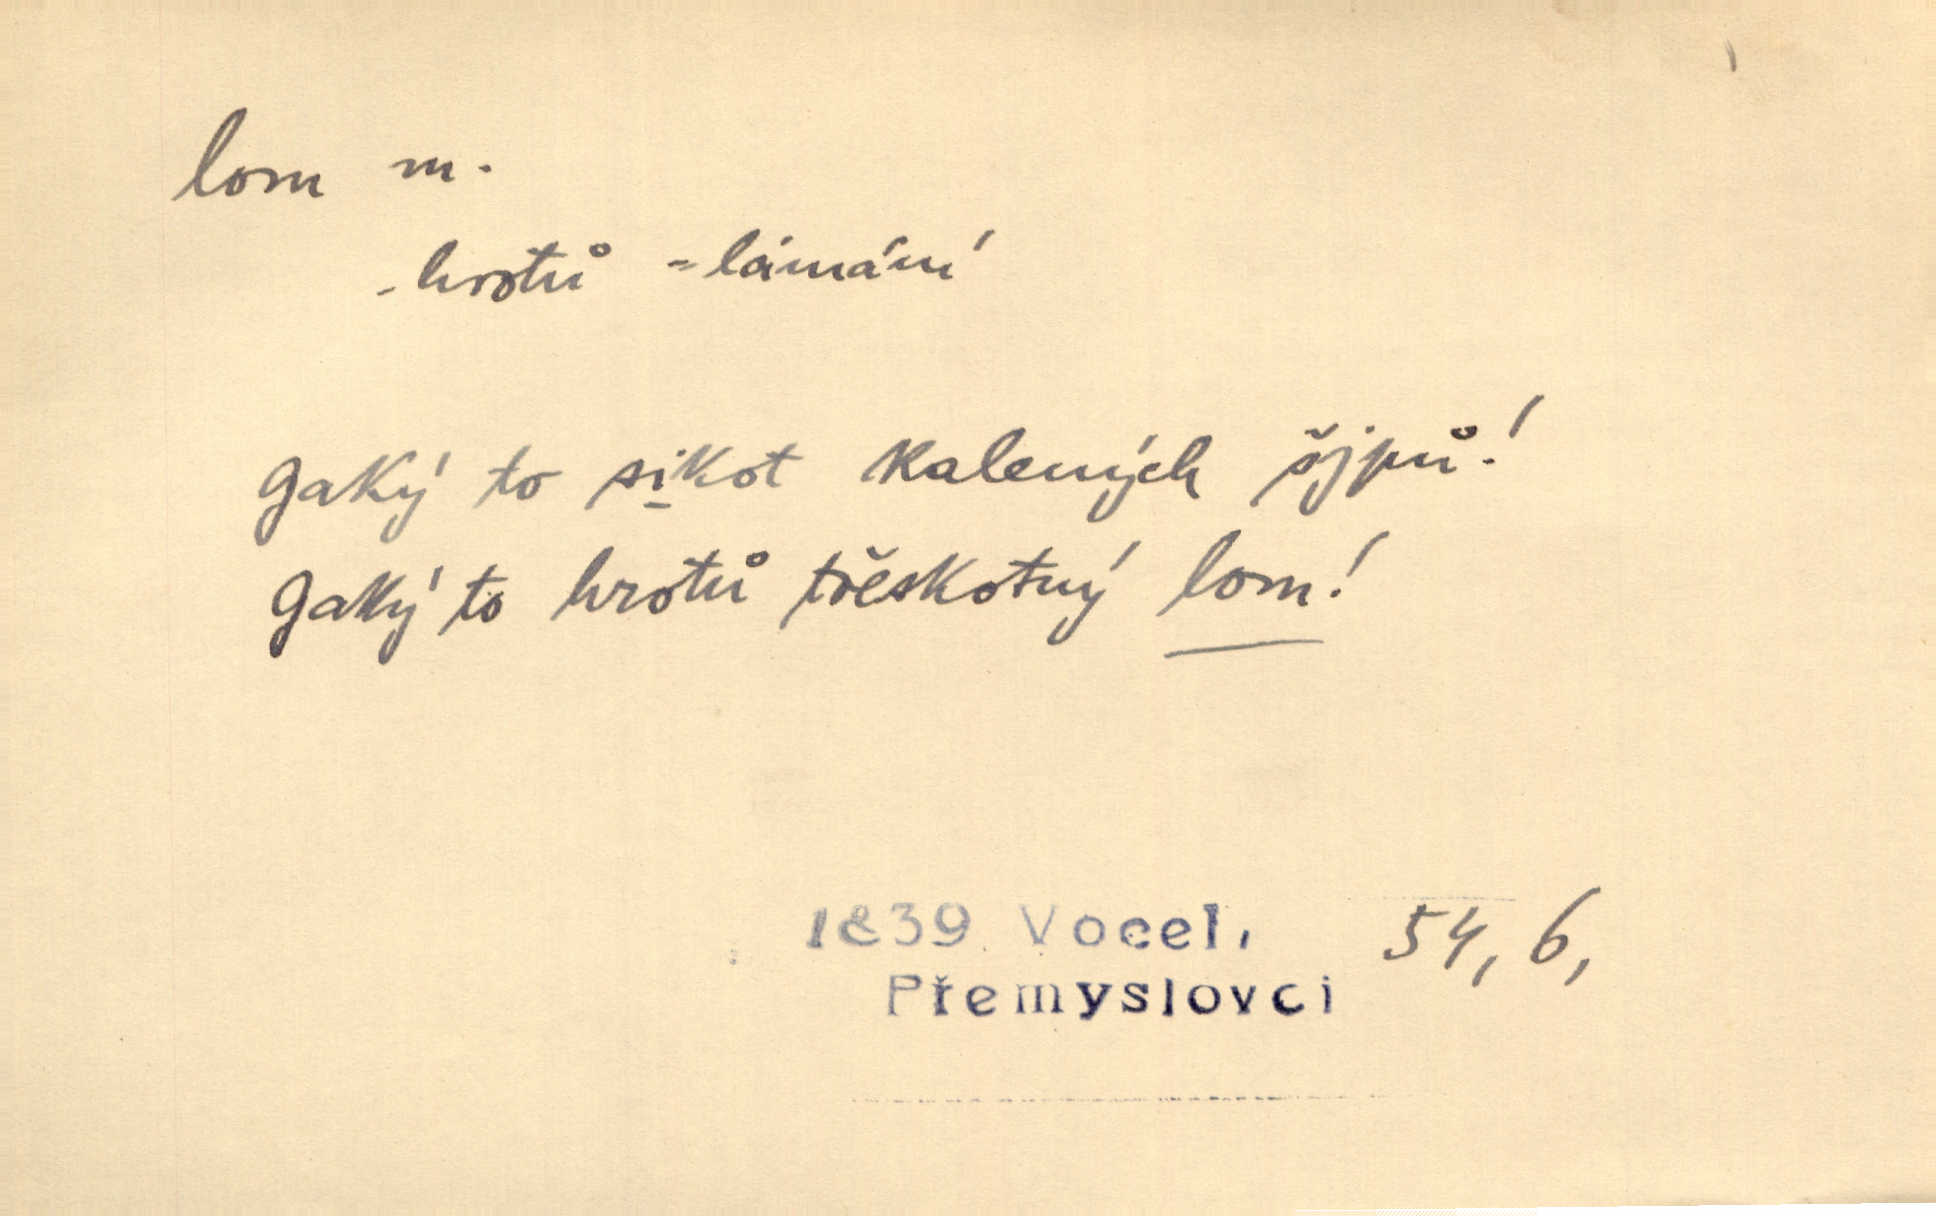 lom m.
- hrotů = lámání
Gaký to sikot kalených šjpů!
Gaký to hrotů třeskotný lom!
1839 Vocel, 54, 6,
Přemyslovci